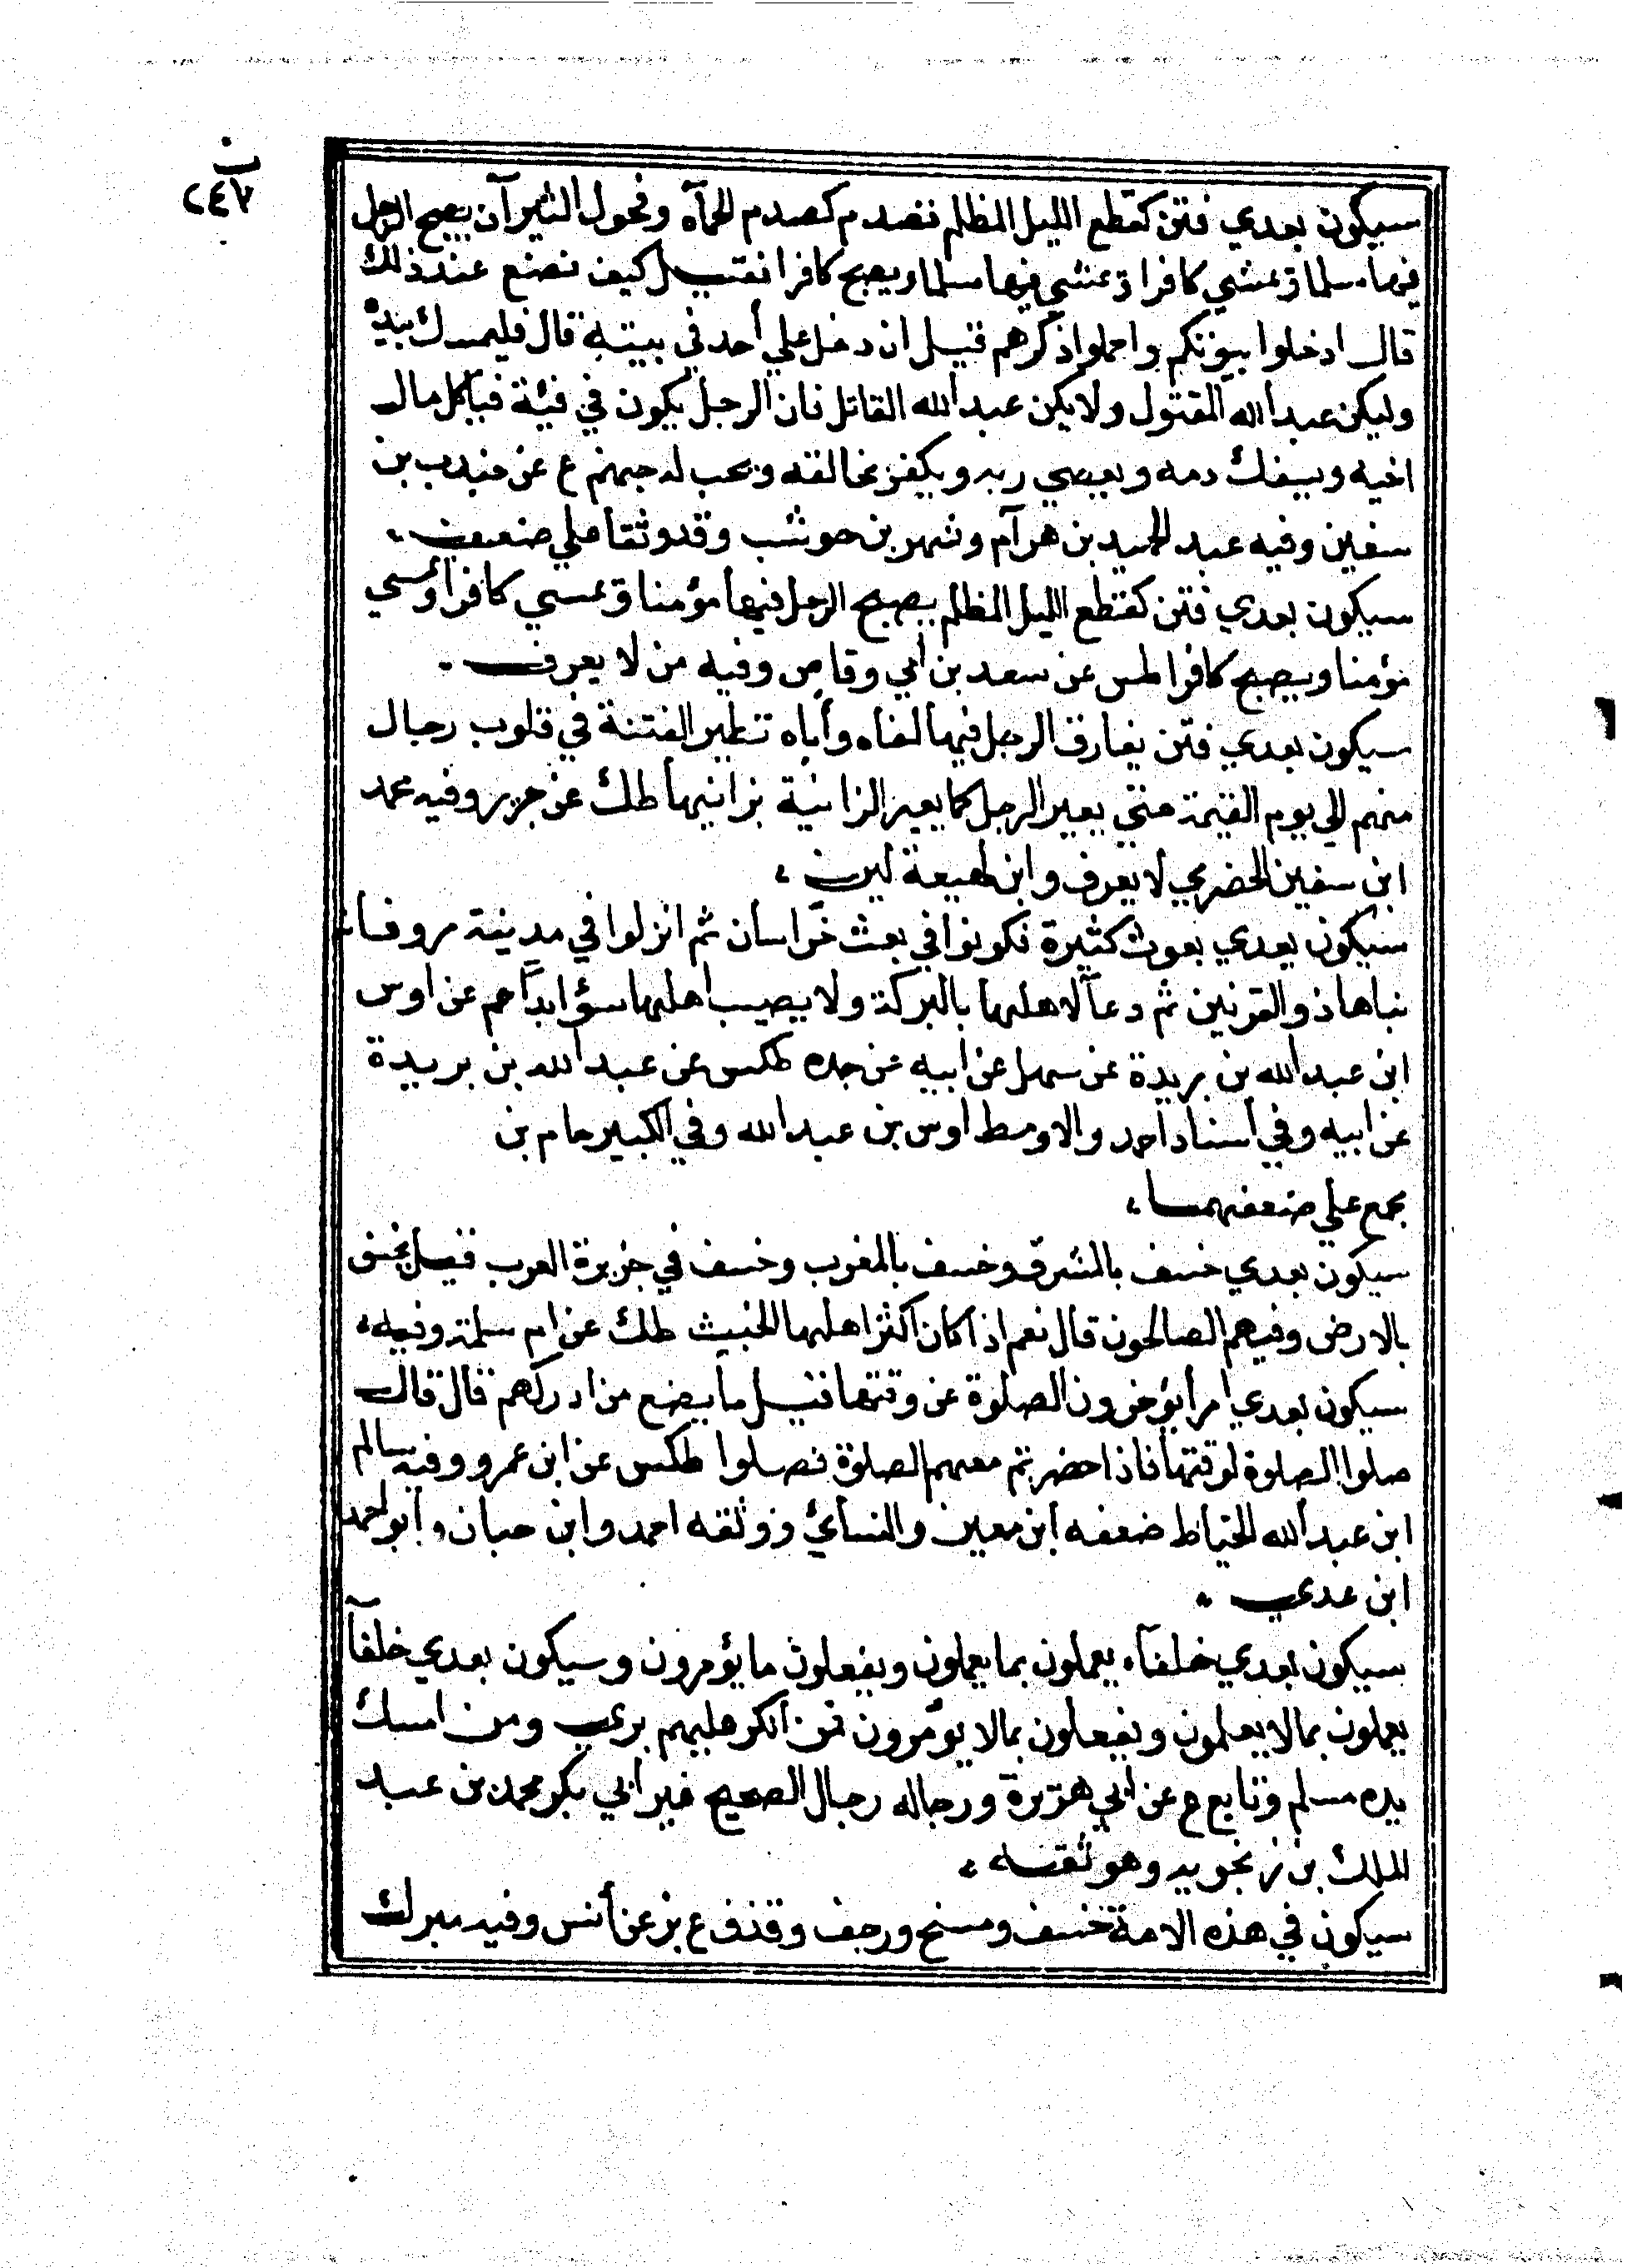 ن
٢٤٧
سيكون بعدي فتن كقطع الليل المظلم تصدم كصدم الحمآه وفحول الثيرآن يصبح الرجل
فيها مسلما ويمشي كافرا ويمشي فيها مسلما ويصبح كافرا فقيل كيف نصنع عند ذلك
قال ادخلوا بيوتكم واحملوا ذكركم قيل ان دخل علي أحد في بيته قال فليمسك بيده
وليكن عبد الله المقتول ولا يكن عبد الله القاتل فان الرجل يكون في فئة فياكل مال
اخيه ويسفك دمه ويعصي ربه ويكفر بخالقه وتجب له جهنم ع عن جندب بن
سفين وفيه عبد الحميد بن هرآم وشهر بن حوشب وقد وثقا علي ضعف
سيكون بعدي فتن كقطع الليل المظلم يصبح الرجل فيها مؤمنا ويمسي كافرا ويمسي
مؤمنا ويصبح كافرا طس عن سعد بن أبي وقاص وفيه من لا يعرف
سيكون بعدي فتن يفارق الرجل فيها أخاه وأباه تطير الفتنة في قلوب رجال
منهم الي يوم القيمة حتي يعير الرجل كما يعير الزانية بزانيها طك عن وفيه محمد
ابن سفين الحضرمي لا يعرف وابن لهيعة لين
سيكون بعدي بعوث كثيرة فكونوا في بعث خراسان ثم انزلوا في مدينة مرو فانه
بناها ذو القرنين ثم دعآ لاهلها بالبركة ولا يصيب اهلها سؤ ابدا حم عن اوس
ابن عبد الله بن بريدة عن سهل عن ابيه عن جده طكس عن عبد الله بن بريدة
عن ابيه وفي أسناد احمد والاوسط اوس بن عبد الله وفي الكبير حام بن
مجمع علي ضعفهما
سيكون بعدي خسف بالمشرق وخسف بالمغرب وخسف في جزيرة العرب فقيل يخسف
بالارض وفيهم الصالحون قال نعم اذا كان اكثر اهلها الخبيث طك عن ام سلمة وفيه
سيكون بعدي امرأ يؤخرون الصلوة عن وقتها فقيل ما يصنع من ادركهم قال قال
صلوا الصلوة لوقتها فاذا حضرتم معهم الصلوة فصلوا طكس عن ابن عمرو وفيه سالم
ابن عبد الله الخياط ضعفه ابن معين والنسائي ووثقه احمد وابن حبان وأبو احمد
ابن عدي
سيكون بعدي خلفآء يعملون بما يعملون ويفعلون ما يؤمرون وسيكون بعدي خلفآ
يعملون بما لا يعلمون ويفعلون بما لا يؤمرون فمن انكر عليهم بري ومن امسك
يده مسلم وتابع ع عن ابي هريرة ورجاله رجال الصحيح غير أبي بكر محمد بن عبد
الملك بن زنجويه وهو ثقه
سيكون في هذه الامة خسف ومسخ ورجف وقذف ع بز عن أنس وفيه مبرك